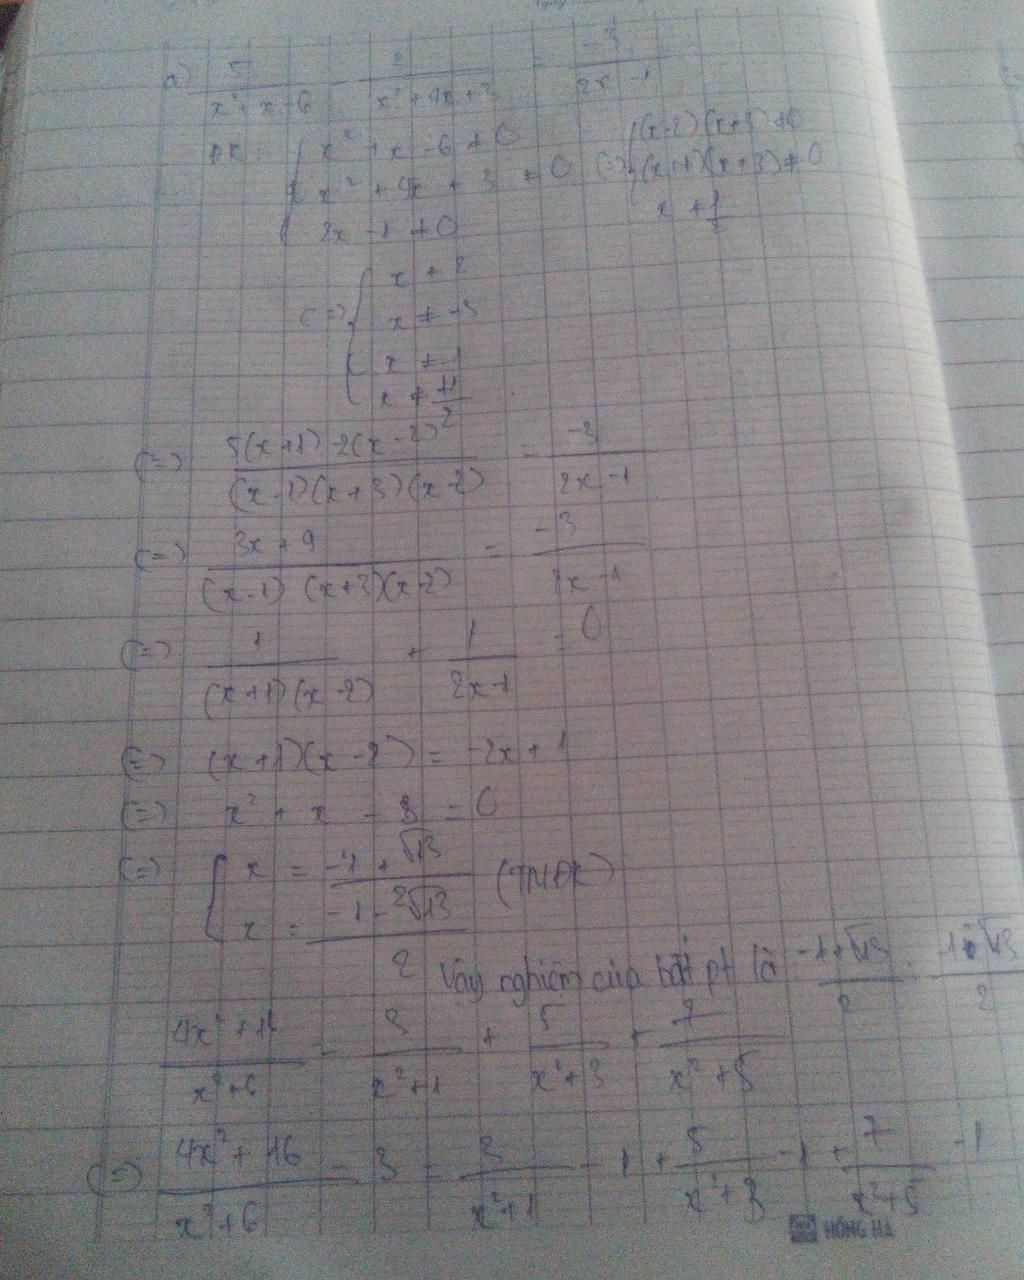 a) 5/(x² + x - 6) - 2/(x² + 4x + 3) = -3/(2x - 1)
ĐK: { x² + x - 6 ≠ 0 ; x² + 4x + 3 ≠ 0 ; 2x - 1 ≠ 0 (=) { (x-2)(x+3) ≠ 0 ; (x+1)(x+3) ≠ 0 ; x ≠ 1/2
(=) { x ≠ 2
x ≠ -3
x ≠ -1
x ≠ 1/2
(=) (5(x+1) - 2(x-2))/((x-1)(x+3)(x-2)) = -3/(2x-1)
(=) (3x + 9)/((x-1)(x+3)(x-2)) = -3/(2x-1)
(=) 1/((x+1)(x-2)) + 1/(2x-1) = 0
(=) (x+1)(x-2) = -2x + 1
(=) x² + x - 3 = 0
(=) [ x = (-1 + √13)/2 (TMĐK)
x = (-1 - √13)/2
Vậy nghiệm của bất pt là (-1+√13)/2 . (-1-√13)/2
(4x² + 16)/(x²+6) - 3/(x²+1) + 5/(x²+3) + 7/(x²+5)
(=) (4x² + 16)/(x²+6) - 3 = 3/(x²+1) - 1 + 5/(x²+3) - 1 + 7/(x²+5) - 1
HỒNG HÀ